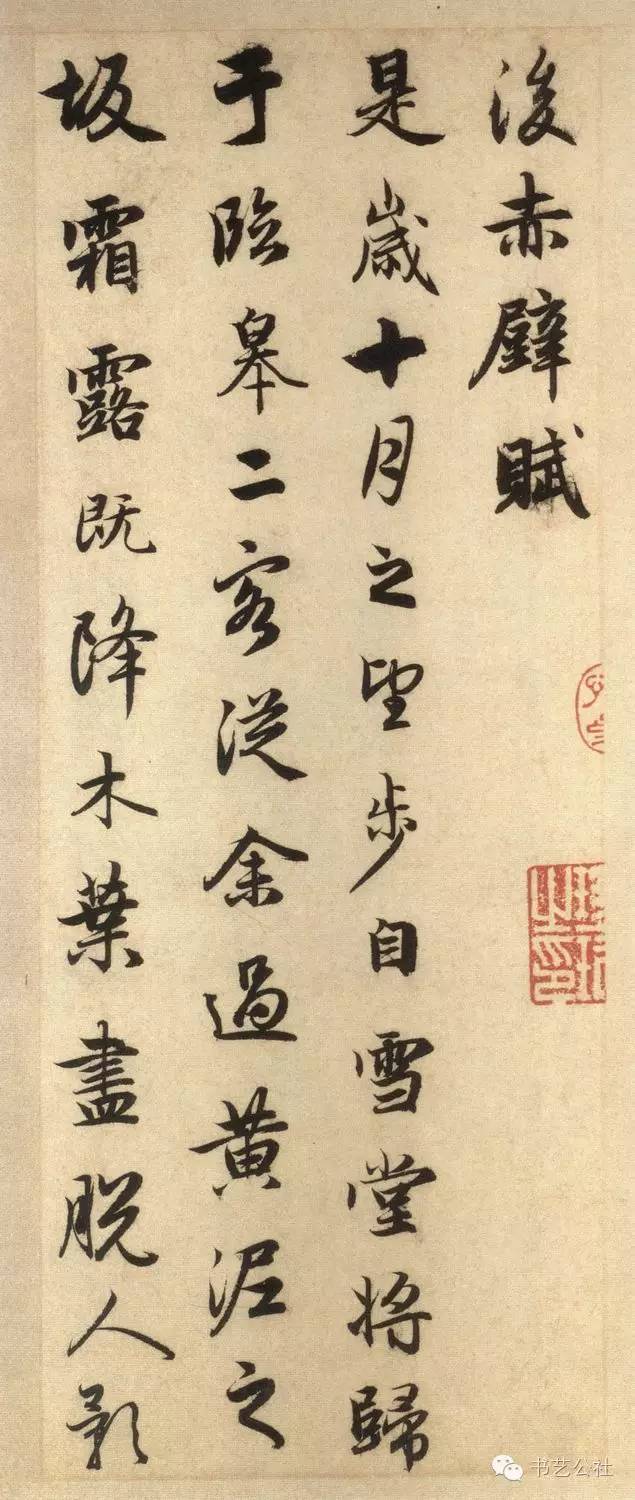 後赤壁賦
是歲十月之望步自雪堂將歸
于臨皋二客從余過黃泥之
坂霜露既降木葉盡脫人影
书艺公社